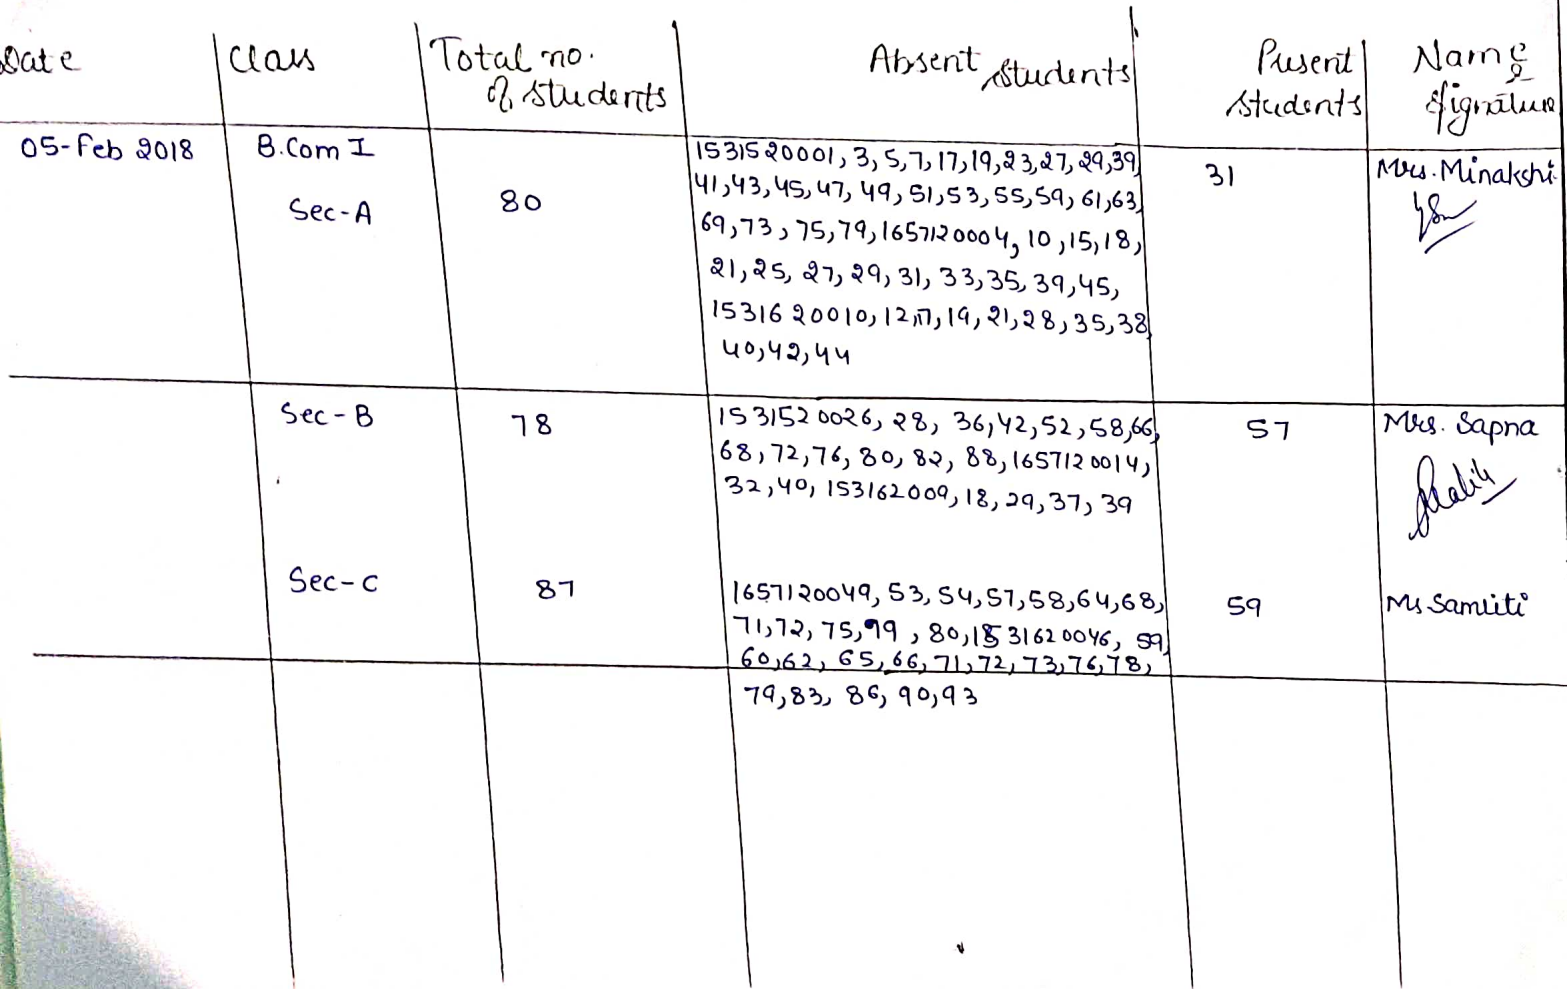 Date Class Total no. of students Absent students Present students Name & Signature
05-Feb 2018 B.Com I Sec-A 80 31 Mrs. Minakshi
1531520001, 3, 5, 7, 17, 19, 23, 27, 29, 39,
41, 43, 45, 47, 49, 51, 53, 55, 59, 61, 63,
69, 73, 75, 79, 1657120004, 10, 15, 18,
21, 25, 27, 29, 31, 33, 35, 39, 45,
1531620010, 12, 17, 19, 21, 28, 35, 38
40, 42, 44
Sec-B 78 57 Mrs. Sapna
1531520026, 28, 36, 42, 52, 58, 66,
68, 72, 76, 80, 82, 88, 1657120014,
32, 40, 153162009, 18, 29, 37, 39
Sec-C 87 59 Ms Samriti
1657120049, 53, 54, 57, 58, 64, 68,
71, 72, 75, 79, 80, 1531620046, 59,
60, 62, 65, 66, 71, 72, 73, 76, 78,
79, 83, 86, 90, 93